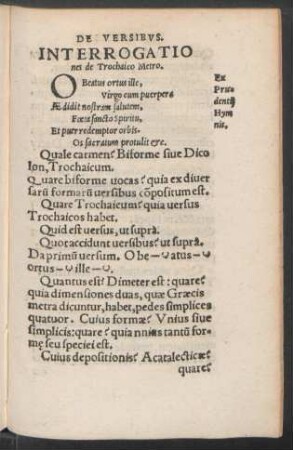 DE VERSIBVS.
INTERROGATIO
nes de Trochaico Metro.
O Beatus ortus ille,
Virgo cum puerpera
Ædidit nostram salutem,
Fœta sancto Spiritu,
Et puer redemptor orbis
Os sacratum protulit &c.
Ex
Pru
dentij
Hym
nis.
Quale carmen? Biforme siue Dico
lon, Trochaicum.
Quare biforme uocas? quia ex diuer
sarū formarū versibus cōpositum est.
Quare Trochaicum? quia versus
Trochaicos habet.
Quid est versus, ut suprà.
Quot accidunt versibus? ut suprà.
Da primū versum. O be–◡atus–◡
ortus–◡ille–◡.
Quantus est? Dimeter est: quare?
quia dimensiones duas, quæ Græcis
metra dicuntur, habet, pedes simplices
quatuor. Cuius formæ? Vnius siue
simplicis: quare? quia vnius tantū for
mę seu speciei est.
Cuius depositionis? Acatalecticæ?
quare?